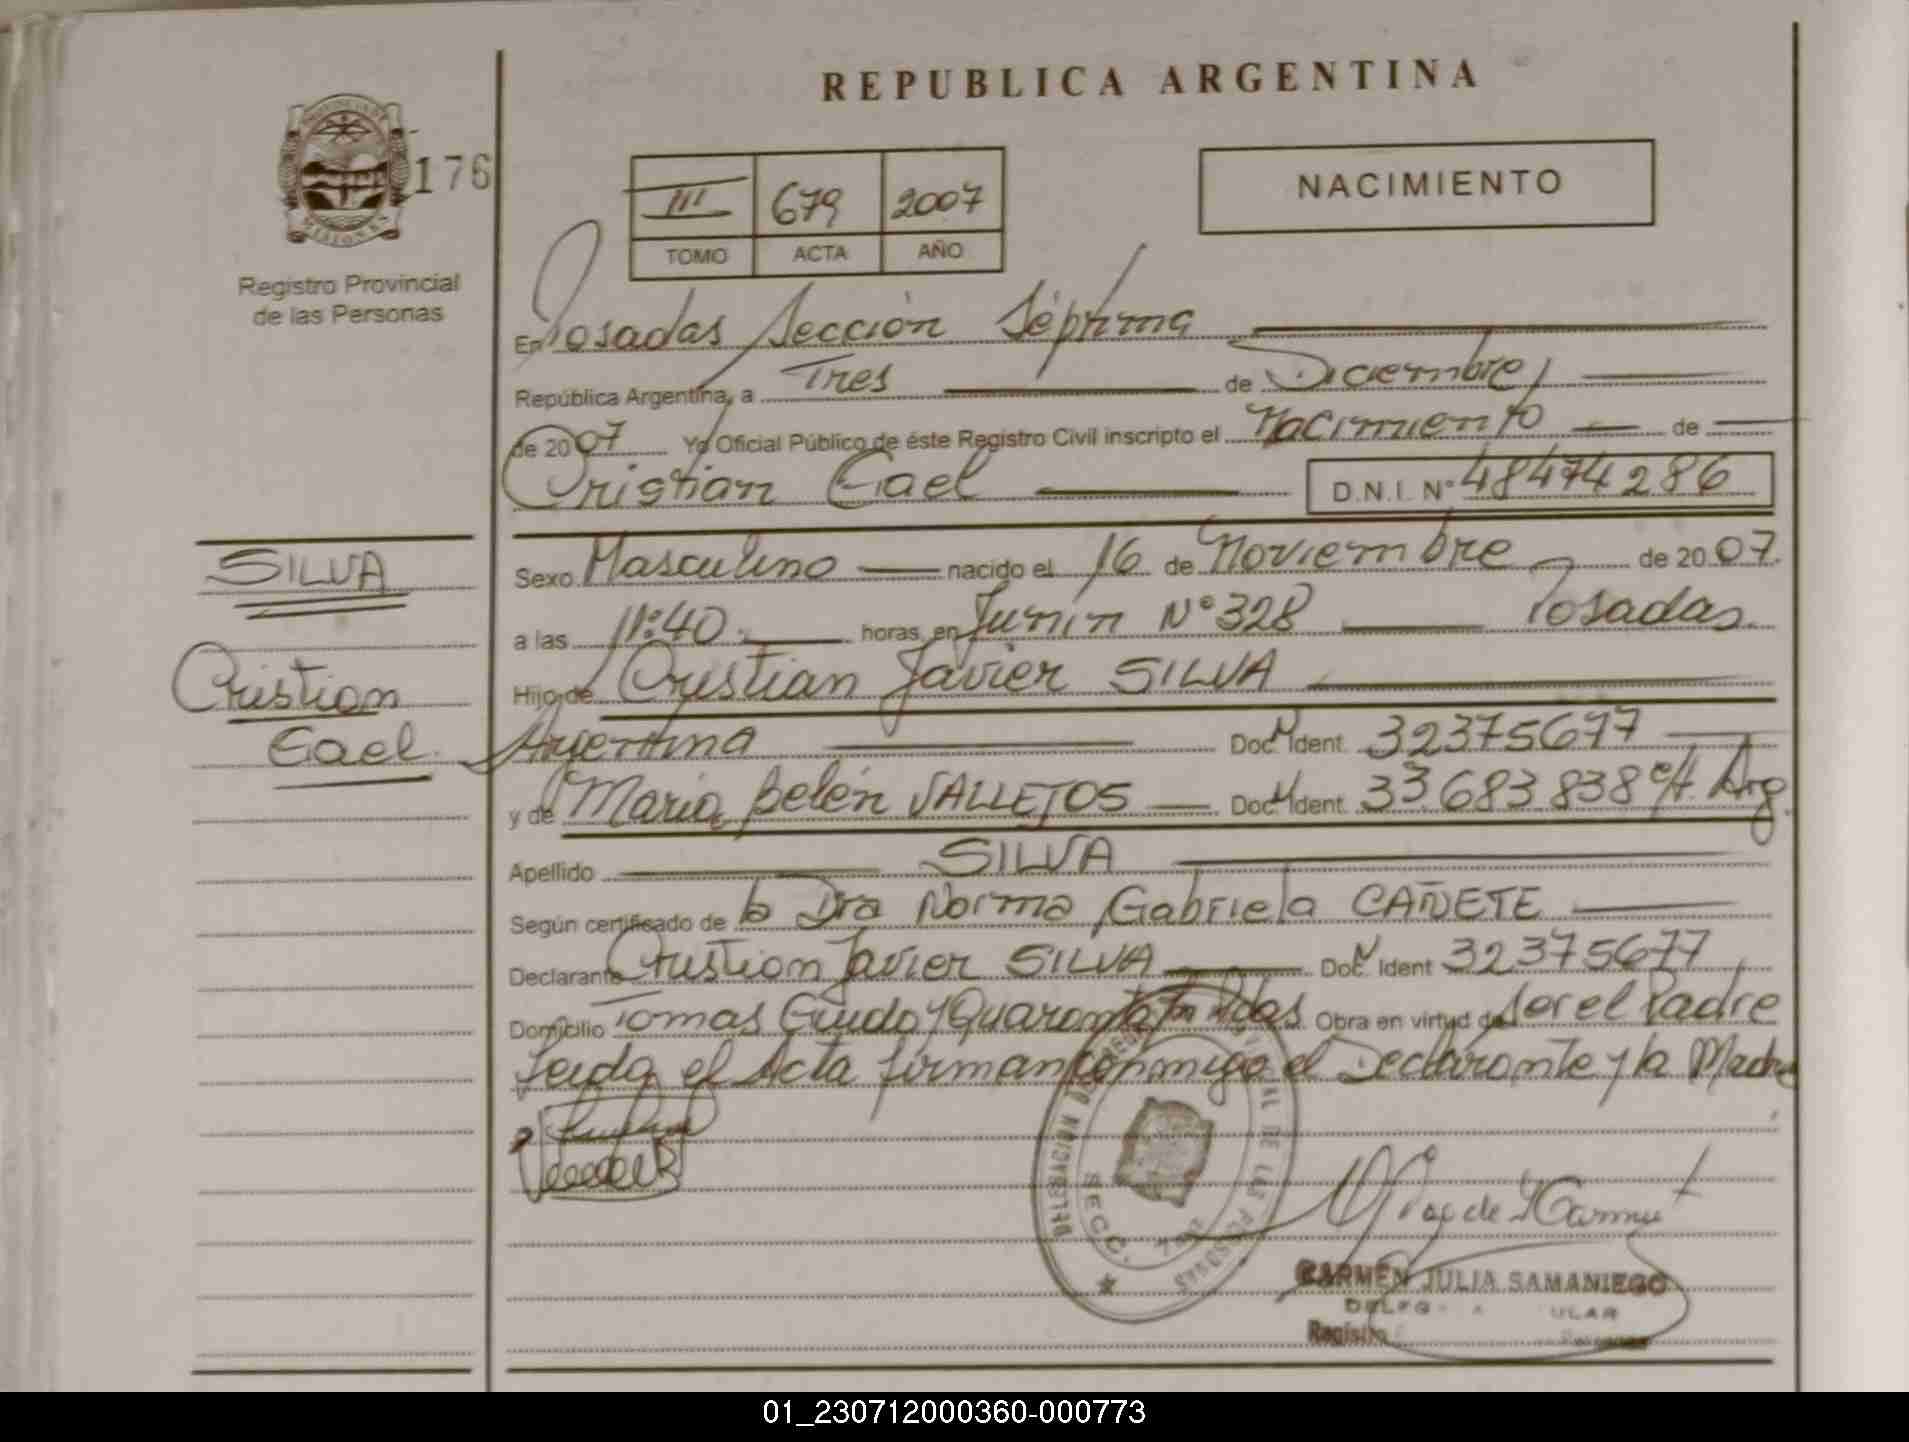 REPUBLICA ARGENTINA
176
III 679 2007
TOMO ACTA AÑO
NACIMIENTO
Registro Provincial
de las Personas
En Posadas Sección Séptima
República Argentina, a Tres de Diciembre
de 2007 Yo Oficial Público de éste Registro Civil inscripto el Nacimiento de
Cristian Eael D.N.I. N° 48474286
SILVA
Cristian
Eael
Sexo Masculino nacido el 16 de Noviembre de 2007.
a las 11:40 horas, en Junín N° 328 Posadas.
Hijo de Cristian Javier SILVA
Argentina Doc. Ident. 32375677
y de María Belén VALLEJOS Doc. Ident. 33683838 Arg.
Apellido SILVA
Según certificado de la Dra Norma Gabriela CAÑETE
Declarante Cristian Javier SILVA Doc. Ident 32375677
Domicilio Tomas Guido y Quaranta Pdas. Obra en virtud de ser el Padre
Leida el Acta firman conmigo el Declarante y la Madre
DELEGACION DE LAS PERSONAS
SECC.
CARMEN JULIA SAMANIEGO
Registro
01_230712000360-000773